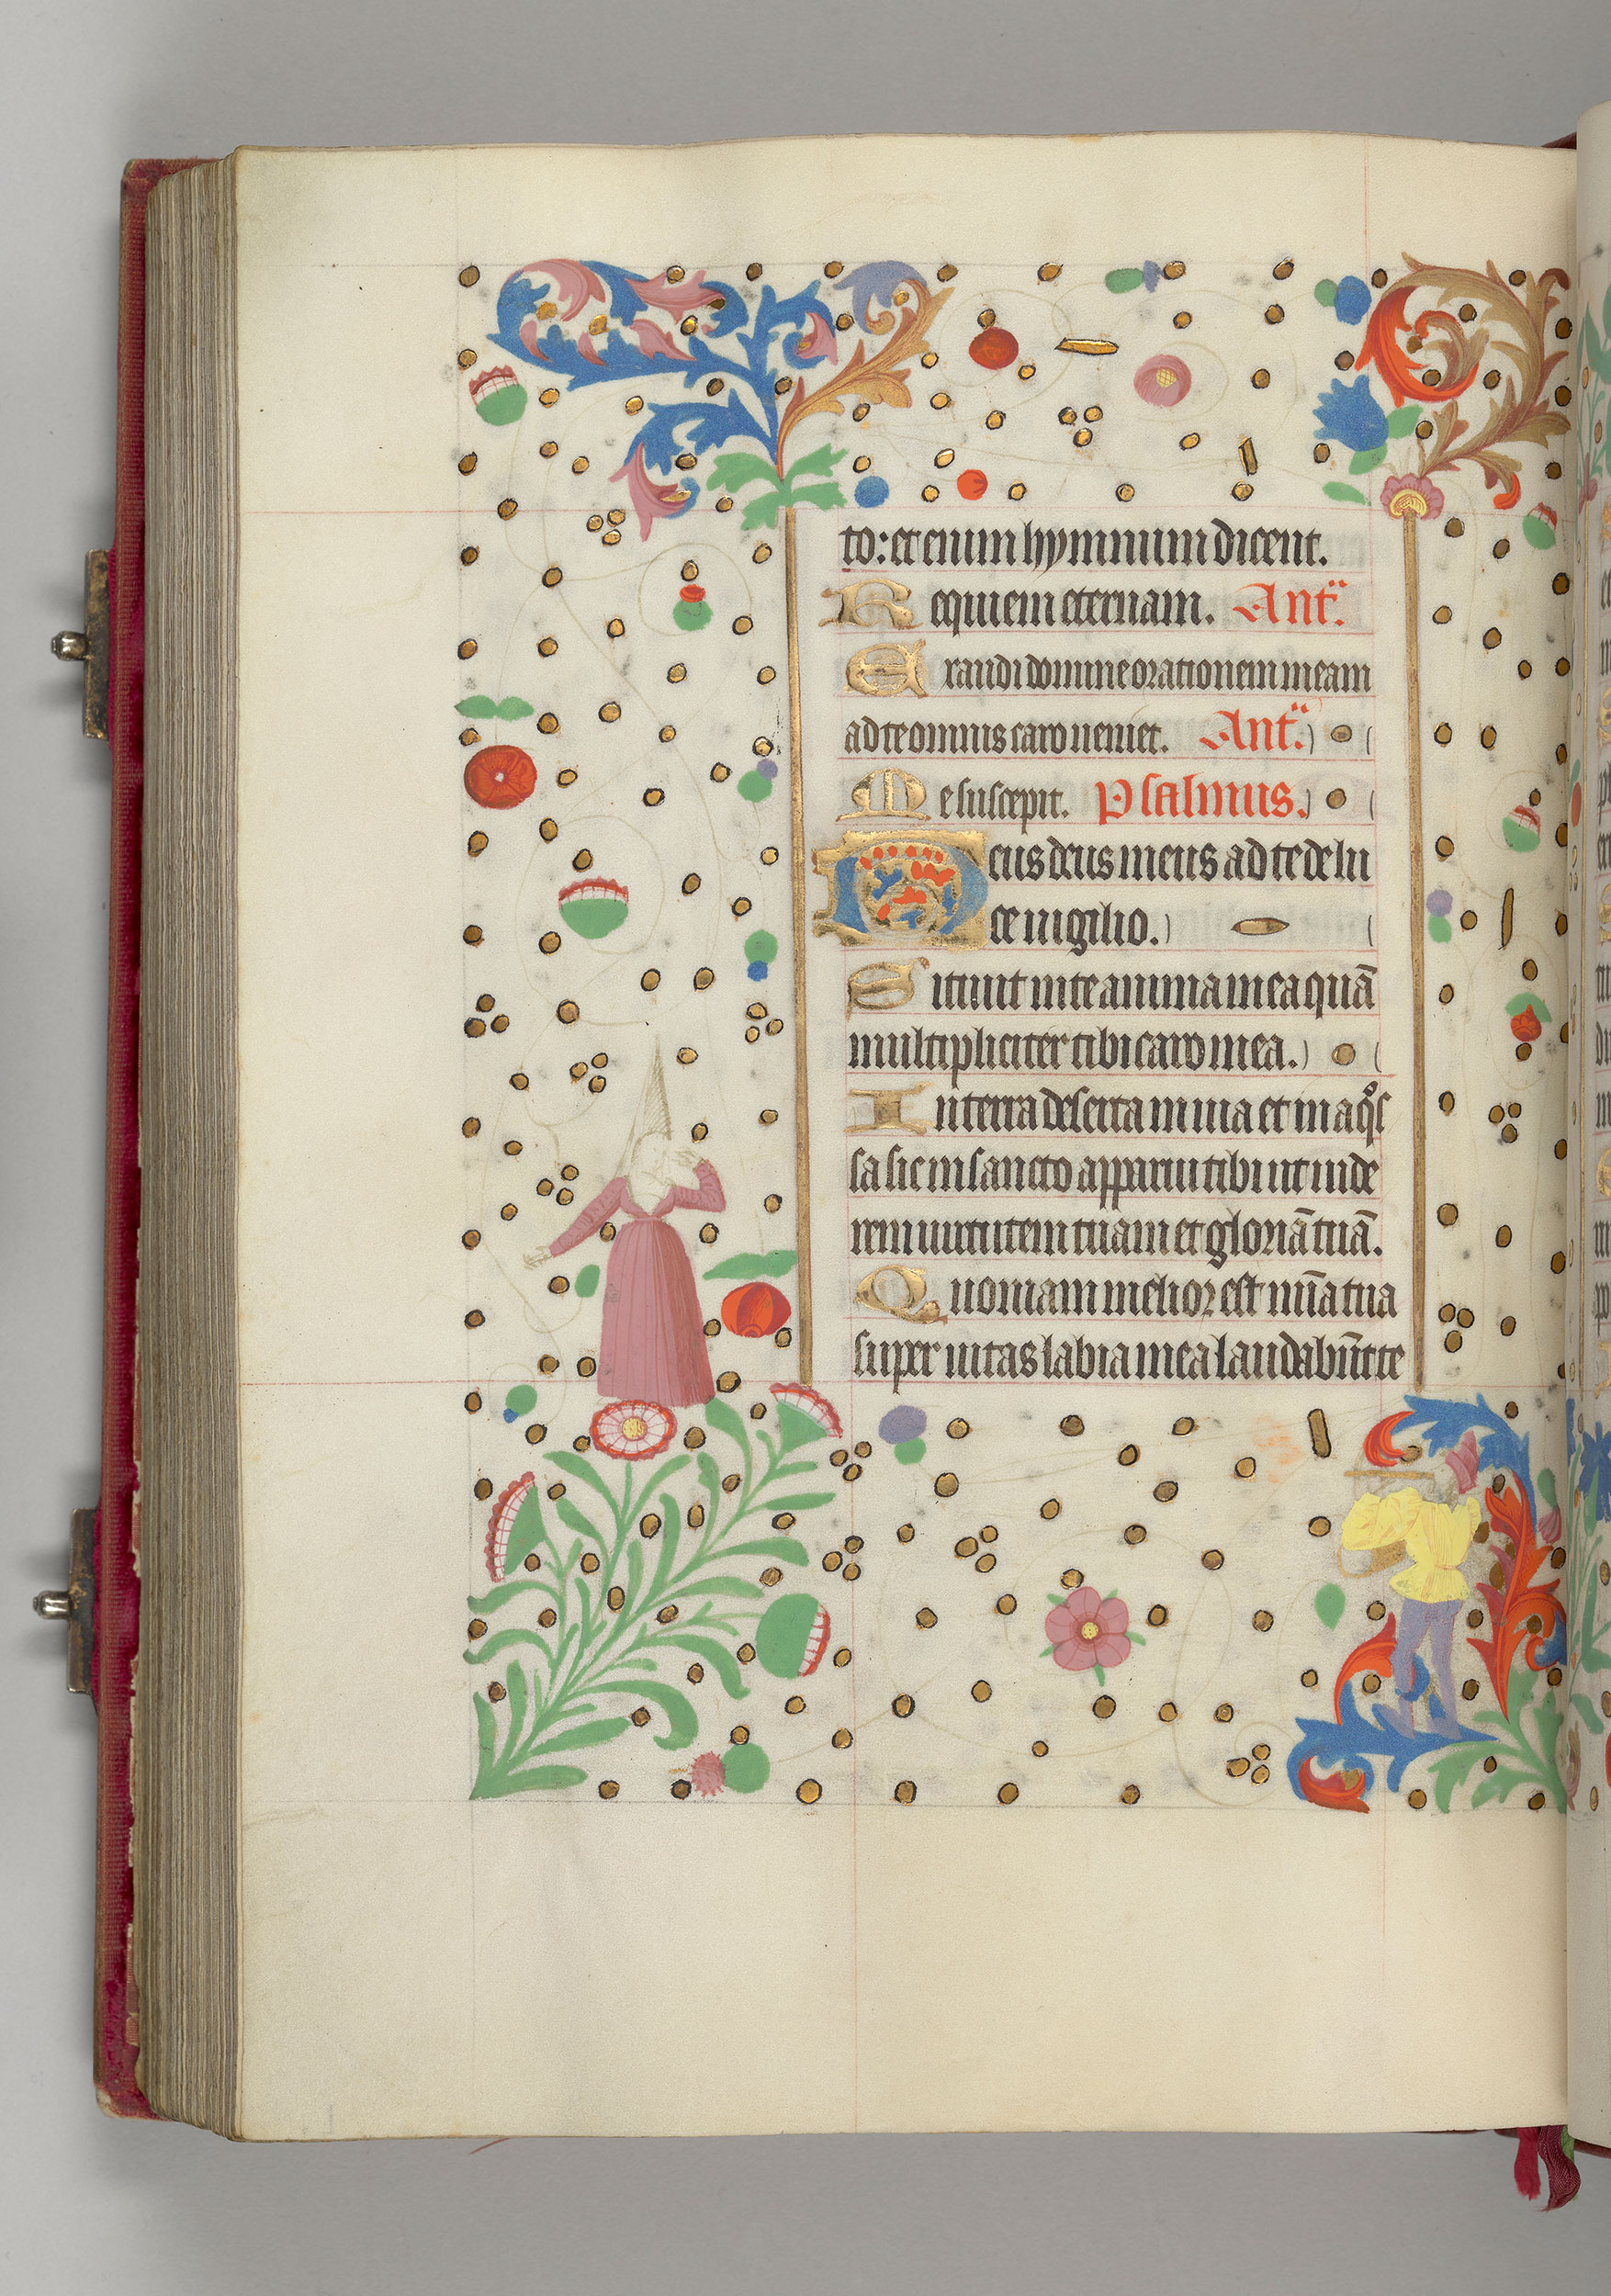 to: et enim hymnum dicent.
Requiem eternam. Añt.
Exaudi domine orationem meam
ad te omnis caro veniet. Añt.
Me suscepit. Psalmus.
Deus deus meus ad te de lu
ce vigilio.
Sitivit in te anima mea quā
multipliciter tibi caro mea.
In terra deserta in via et in aqͦſ
sa sic in sancto apparui tibi ut vide
rem virtutem tuam et gloriā tuā.
Quoniam melior est mīa tua
super vitas labia mea laudabūt te